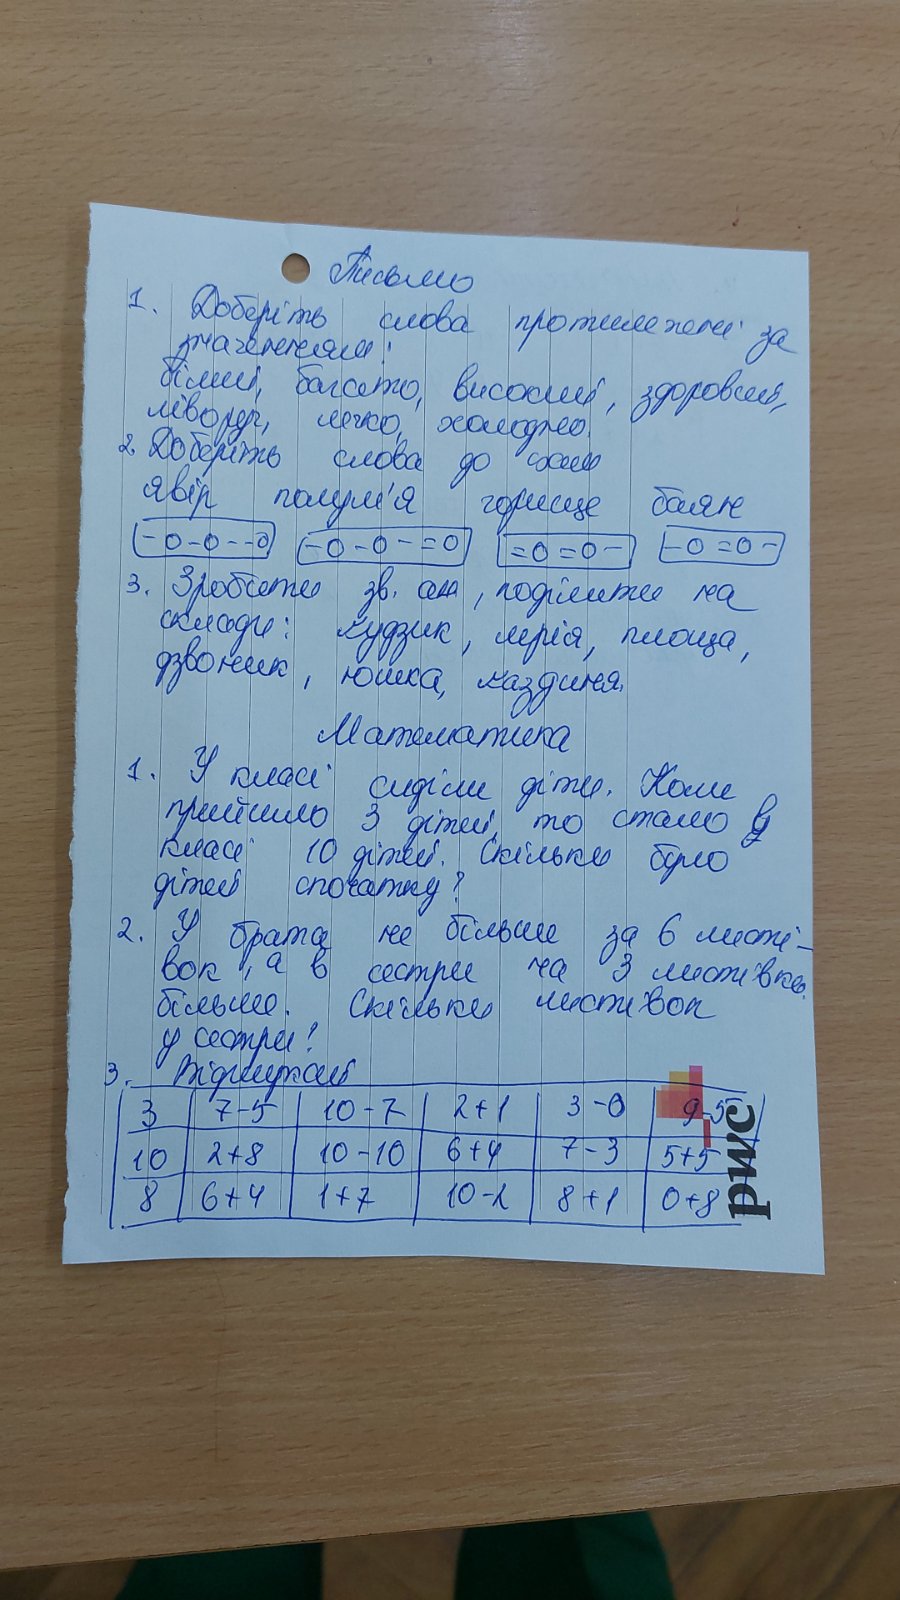 Письмо
1. Доберіть слова протилежні за
значенням:
білий, багато, високий, здоровий,
ліворуч, легко, холодно.
2. Доберіть слова до схем
явір полум'я горище баян
–О–О––О –О–О–=О =О=О– –О=О–
3. Зробити зв. ан, поділити на
склади: ґудзик, мрія, площа,
дзвоник, юшка, ґаздиня.
Математика
1. У класі сиділи діти. Коли
прийшло 3 дітей, то стало в
класі 10 дітей. Скільки було
дітей спочатку?
2. У брата не більше за 6 листі–
вок, а в сестри на 3 листівки
більше. Скільки листівок
у сестри?
3. Відшукай
3 7–5 10–7 2+1 3–0 9–5
10 2+8 10–10 6+4 7–3 5+5
8 6+4 1+7 10–2 8+1 0+8
pwc